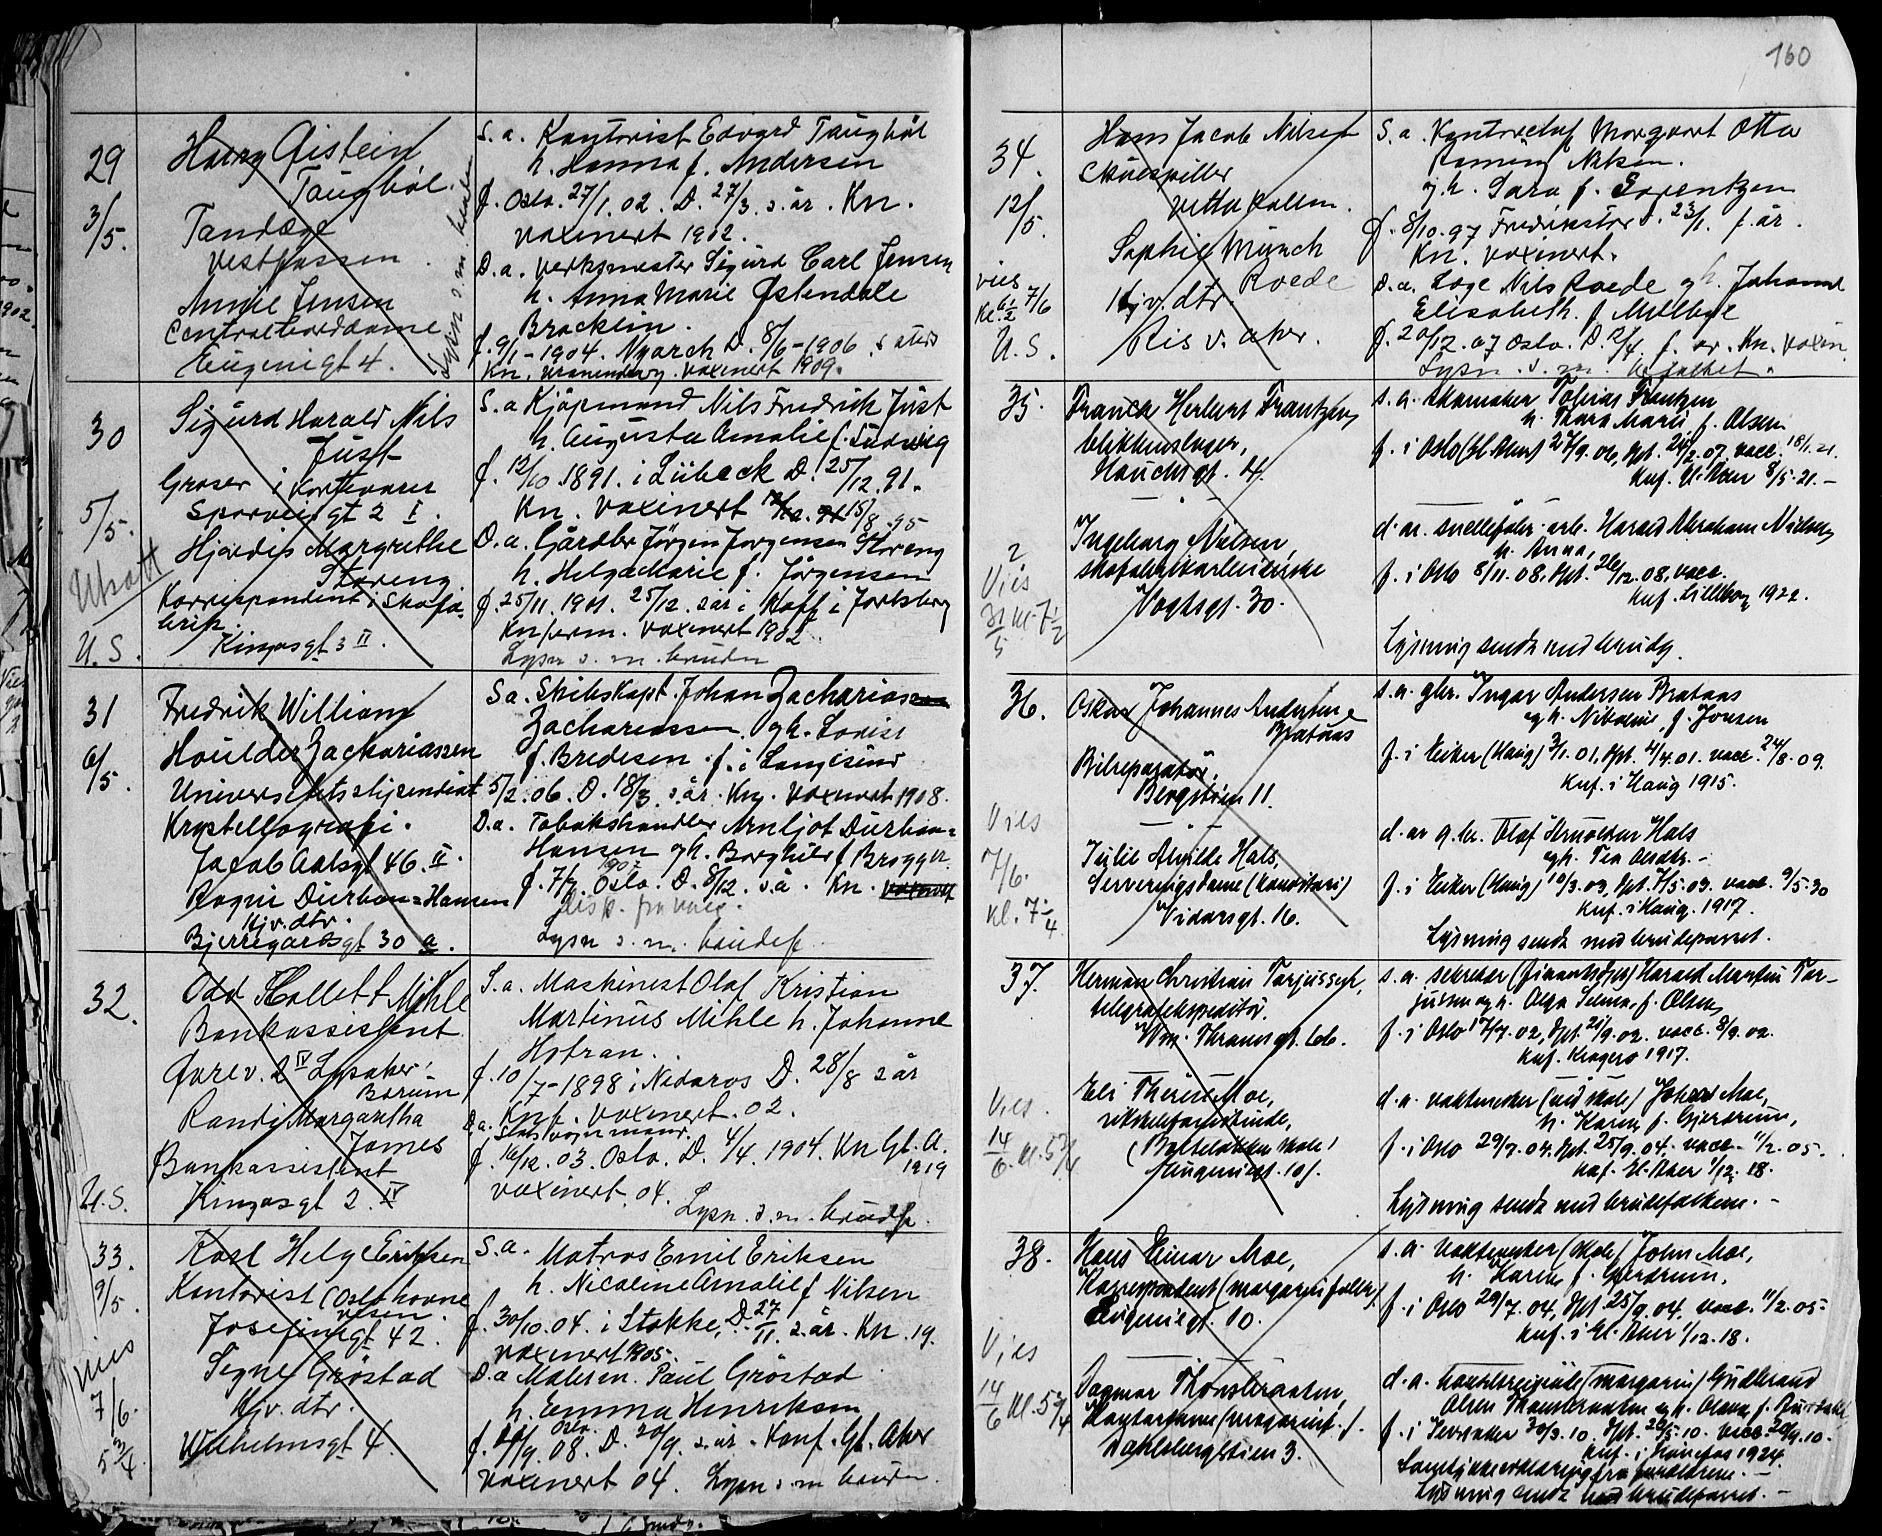 160
29
3/5.
Harry Øistein
Taugbøl.
Tandlæge
Vestfossen.
Annie Jensen
Centralborddame
Eugenigt 4.
Lysn s. m. bruden
S. a. Kontorist Edvard Taugbøl
h. Hanna f. Andersen
f. Oslo. 27/1. 02. D. 27/3. s. år. Kn.
vaxinert 1902.
D. a. Verksmester Sigurd Carl Jensen
h. Anna Marie Østendale
Bracklin.
f. 9/1 - 1904. Nyarch D. 8/6 - 1906.
Kn. Uranienborg. vaxinert 1909.
30
5/5.
Utsatt
U. S.
Sigurd Harald Nils
Just
Groser i Kortevarer
Sporveisgt 2 I.
Hjørdis Margrethe
Storeng
Korrespondent i Skofa-
brik.
Kingosgt 3 II.
S. a Kjøpmand Nils Fredrik Just
h. Augusta Amalie f. Ludwig
f. 12/10 1891. i Lübeck D. 25/12. 91.
Kn. Vaxinert 15/8. 95
D. a. Gårdbr Jörgen Jorgensen Storeng
h. Helga Marie f. Jörgensen
f. 25/11. 1901. 25/12. s år i
Knferm. Vaxinert 1902
Lysn s. m. bruden
31
6/5.
Fredrik William
Houlder Zachariassen
Universitetsstipendiat
Krystallografi.
Jacob Aalsgt 46. II.
Ragni Durban=Hansen
Hjv. dtr.
Bjerregårdsgt 30 a.
S a. Skibskapt. Johan Zachariassen
Zachariassen gh. Lovise
f. Bredesen. f. i Langesund
5/2. 06. D. 18/3. s. år. Kn. Vaxinert 1908.
D. a. Tobakshandler Arnljot Durban=
Hansen gh. Borghild f Brøgger
f. 7/7 1907 Oslo. D. 8/12. s. å. Kn. vaxinert
Lysn s. m. brudef.
32.
U. S.
Odd Hallet Mihle
Bankassistent
Øvrev. 2 IV Lysaker
Bærum
Randi Margaretha
James
Bankassistent
Kingosgt 2. IV
S. a. Maskinist Olaf Kristian
Martinus Mihle h. Johanne
f. 10/7 - 1898 i Nidaros D. 28/8 s år
Knf. Vaxinert. 02.
D. a.
f. 16/12. 03. Oslo. D. 4/4. 1904. Kn Gl. A.
1919
vaxinert. 04. Lysn. s. m. brudf.
33.
9/5.
vies
7/6.
5 3/4.
Karl Helge Eriksen
Kontorist (Oslo havne
vesen.
Josefinegt 42.
Signe Grøstad
Hjv. dtr.
Wilhelmsgt 4.
S. a. Matros Emil Eriksen
h. Nicoline Amalie f Nilsen
f. 30/10. 04. i Stokke, D. 27/11. s. år. Kn. 19.
vaxinert 1905.
D. a Malerm. Paul Grøstad
h. Emma Henriksen
Oslo 08. D. 20/9. s. år. Konf. Gl. Aker
vaxinert 04. Lysn s. m bruden.
34.
12/5.
vies
Kl. 6 1/2 7/6
U. S.
Hans Jacob Nilsen
Skuespiller
Sophie Munch
Roede
Hjv. dtr.
Ris v. Aker.
S. a. Kontorchef Margvart Otto
Nilsen.
g. h. Sara f. Sørentzen
f. 8/10. 97 Fredrikstad D. 23/1. f. år.
Kn. vaxinert.
D. a. Loge Nils Roede gh. Johanne
Elisabeth f Mellbye
f. 20/12. 07 Oslo. D. 2/4. f. år. Kn. vaxin.
Lysn. s. m.
35.
2
Vies
31/5 kl. 7 1/2
Franck Herbert Frantzen,
blikkenslager,
Hauchsgt. 4.
Ingeborg Nielsen,
skofabrikarbeiderske
Vogtsgt. 30.
s. a. skomaker Tobias Frantzen
h. Thora Marie f. Olsen
f. i Oslo (Gl. Aker) 27/9. 06, dpt. 24/2. 07. vacc. 18/1. 21.
knf. Gl. Aker 8/5. 21. -
h. Anna,
f. i Oslo 8/11. 08. dpt. 26/12. 08. vacc.
knf. Lilleborg 1922.
Lysning sendt med brudef.
36.
Vies
7/6.
kl. 7 1/4
Oskar Johannes Andersen
Brataas
Bilreparatør,
Bergstien 11.
Julie Alvilde Hals,
Serveringsdame (konditori)
Vidarsgt. 16.
s. a. gbr. Ingar Andersen Brataas
og h. Nikoline, f. Jonsen
f. i Eiker (Haug) 3/1. 01. dpt. 4/4. 01. vacc. 24/8. 09.
knf. i Haug 1915.
d. av g.br. Olaf Hals
og h. Tea Olsdtr. -
f. i Eiker (Haug) 10/3. 03, dpt. 7/5. 03. vacc. 9/5. 30
knf. i Haug. 1917.
Lysning sendt med brudeparret.
37.
Vies.
14/6. kl. 5 3/4
Herman Christian Tarjussen,
telegrafekspeditør.
Wm. Thranesgt. 66.
Eli Therese Moe,
(Bolteløkken skole)
Eugeniesgt. 10.
s. a. sekretær (finantsdept) Harald Martin Tar-
jussen og h. Olga Selma, f. Olsen
f. i Oslo 17/7. 02, dpt. 21/9. 02. vacc. 8/9. 02.
knf. Kragerø 1917.
d. a. vaktmester (ved skole) Johan Moe,
h. Karen f. Gjerdrum,
f. i Oslo 29/7. 04. dpt. 25/9. 04. vacc. 11/2. 05.
knf. Gl. Aker 1/12. 18.
Lysning sendt med brudefolkene. -
38.
Vies
14/6 kl. 5 3/4
Hans Einar Moe,
Korrespondent (margarinfabr.)
Eugeniesgt. 10.
Dagmar
Kontordame (margarinf.).
Dahlsbergstien 3.
s. a. vaktmester (skole) John Moe,
h. Karen f. Gjerdrum,
f. i Oslo 29/7. 04, dpt. 25/9. 04. vacc. 11/2. 05
knf. i Gl. Aker 1/12. 18.
knf. i Hønefos 1924.
Samtykkeerklæring fra forældrene. -
Lysning sendt med brudeparret. -